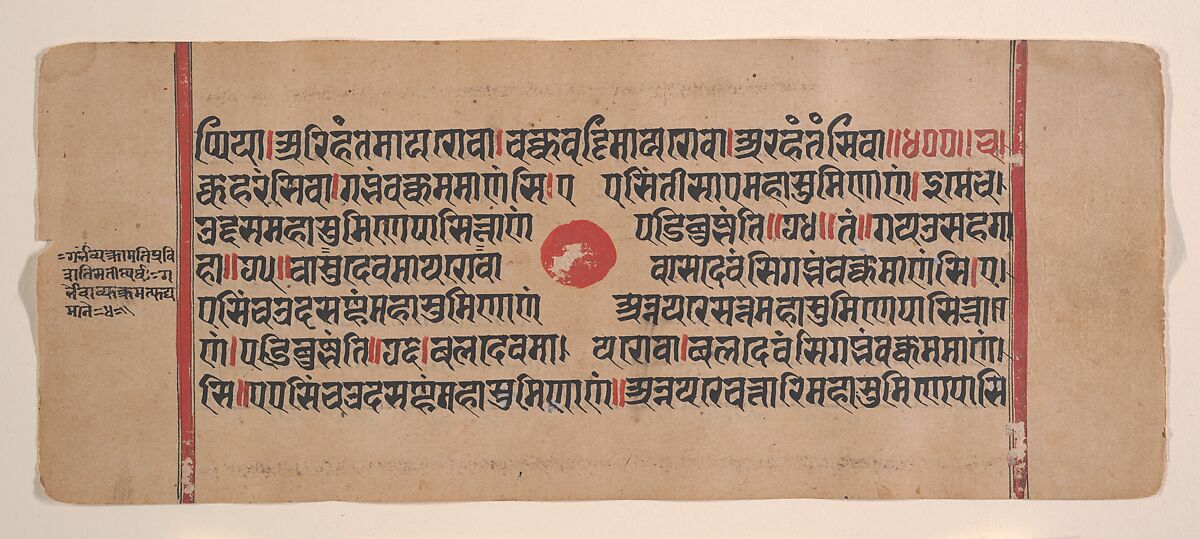 प्पिया।अरिहंतमायरो वा।चक्कवट्टिमायरो वा।अरहंतंसि वा॥४००॥च।
क्कहरंसि वा।गब्भं वक्कममाणंसि।ए एसिं तीसाए महासुमिणाणं।इमे च।
उद्दस महासुमिणे पासित्ताणं पडिबुज्झंति॥७४॥तं॥गय उसह गा
हा॥७५॥वासुदेवमायरो वा वासुदेवंसि गब्भं वक्कममाणंसि।ए।
एसिं चउदसण्हं महासुमिणाणं अन्नयरे सत्त महासुमिणे पासित्ताण
णं।पडिबुज्झंति॥७६।बलदेवमा। यरो वा।बलदेवंसि गब्भं वक्कममाणं।
सि॥एएसिं चउदसण्हं महासुमिणाणं॥अन्नयरे चत्तारि महासुमिणे पासि